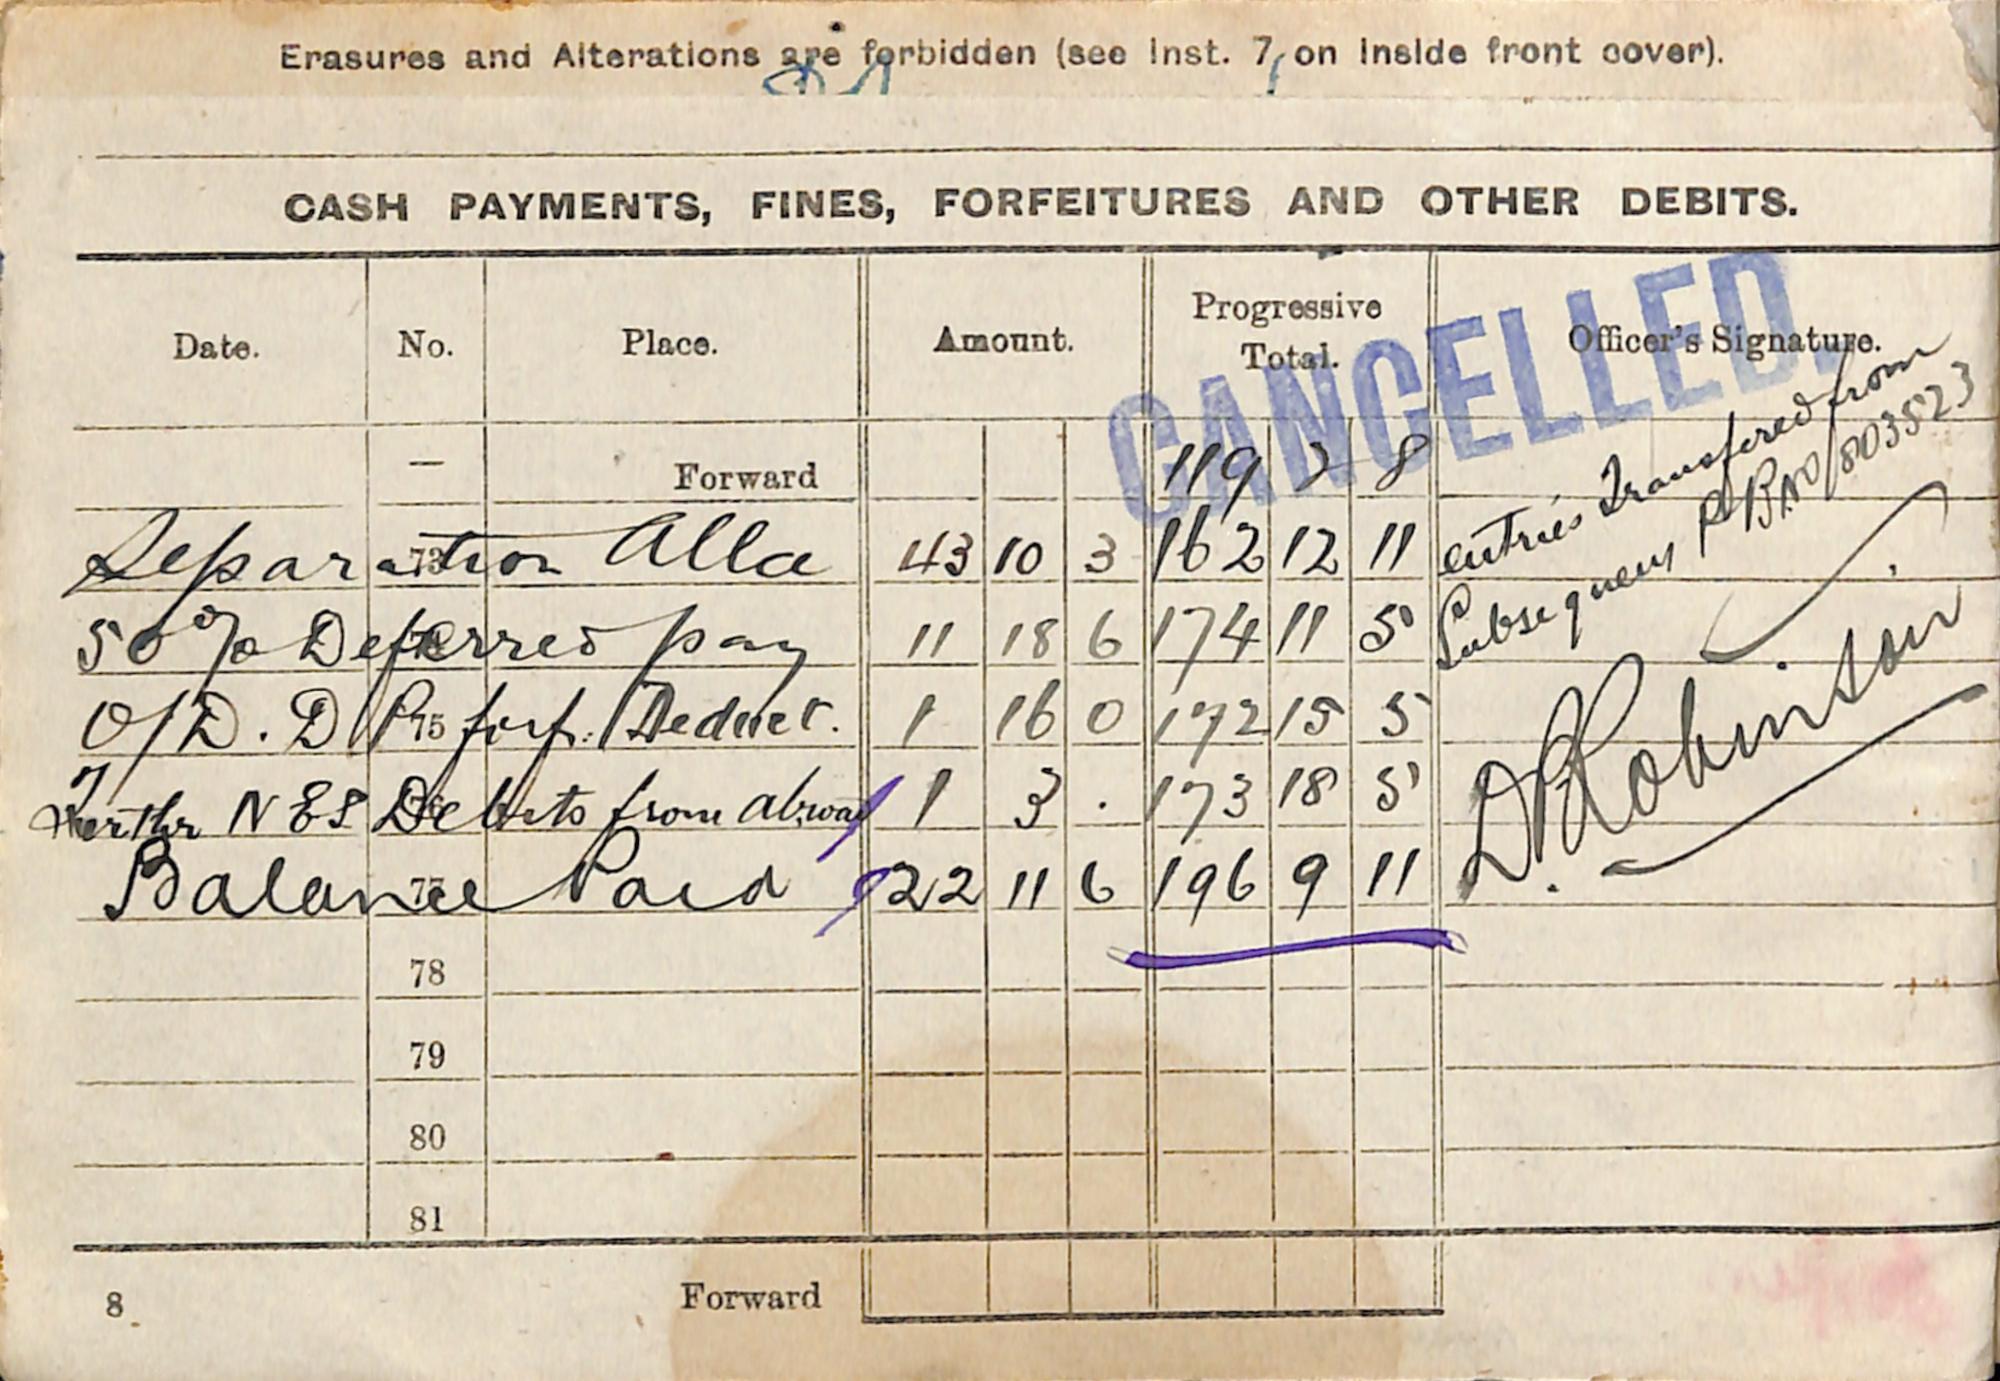 Erasures and Alterations are forbidden (see Inst. 7, on inside front cover).
CASH PAYMENTS, FINES, FORFEITURES AND OTHER DEBITS.
Date. No. Place. Amount. Progressive Total. Officer's Signature.
CANCELLED.
— Forward 119 2 8
Separation Alla 73 43 10 3 162 12 11
50% Deferred pay 11 18 6 174 11 5
O/D. D P 75 forf. Deduct. 1 16 0 172 15 5
Further N E S Debits from abroad 1 3 . 173 18 5
Balance Paid 77 22 11 6 196 9 11
entries Transfered from
Subsequent P B No 803523
D Robinson
78
79
80
81
8 Forward